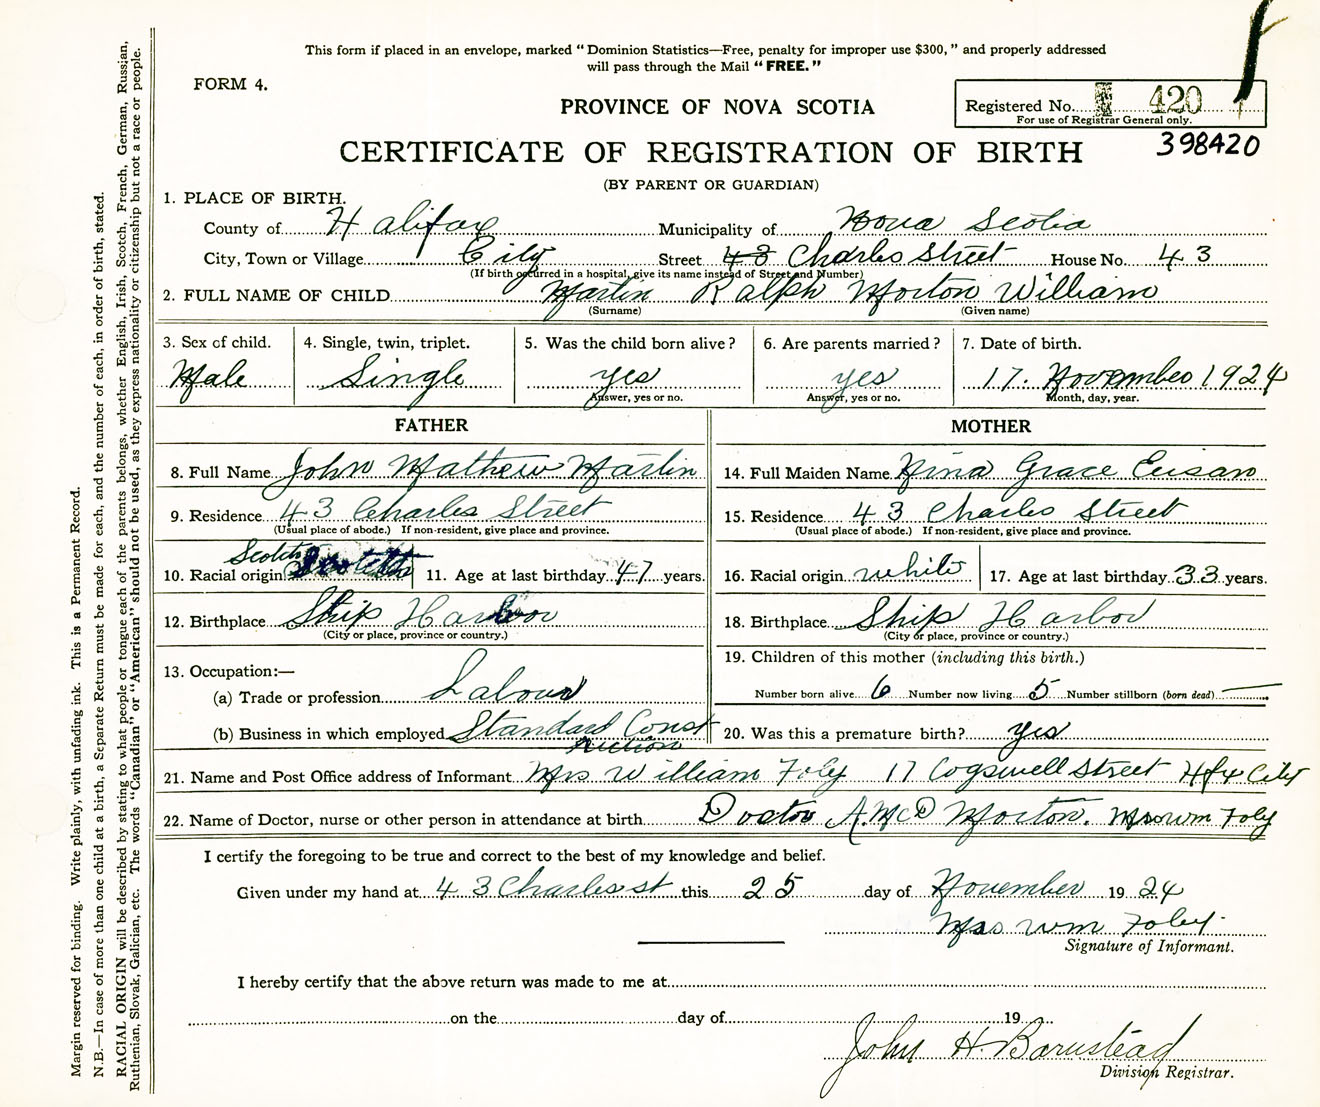 This form if placed in an envelope, marked "Dominion Statistics—Free, penalty for improper use $300," and properly addressed
will pass through the Mail "FREE."
FORM 4.
PROVINCE OF NOVA SCOTIA
Registered No. 420
For use of Registrar General only.
398420
CERTIFICATE OF REGISTRATION OF BIRTH
(BY PARENT OR GUARDIAN)
1. PLACE OF BIRTH.
County of Halifax Municipality of Nova Scotia
City, Town or Village City Street 43 Charles Street House No. 43
(If birth occurred in a hospital, give its name instead of Street and Number)
2. FULL NAME OF CHILD Martin Ralph Morton William
(Surname) (Given name)
3. Sex of child. 4. Single, twin, triplet. 5. Was the child born alive? 6. Are parents married? 7. Date of birth.
Male Single yes yes 17. November 1924
Answer, yes or no. Answer, yes or no. Month, day, year.
FATHER MOTHER
8. Full Name John Mathew Martin 14. Full Maiden Name Nina Grace Eisan
9. Residence 43 Charles Street 15. Residence 43 Charles Street
(Usual place of abode.) If non-resident, give place and province. (Usual place of abode.) If non-resident, give place and province.
10. Racial origin Scotch 11. Age at last birthday 47 years. 16. Racial origin white 17. Age at last birthday 33 years.
12. Birthplace Ship Harbor 18. Birthplace Ship Harbor
(City or place, province or country.) (City or place, province or country.)
13. Occupation:— 19. Children of this mother (including this birth.)
(a) Trade or profession Labour Number born alive 6 Number now living 5 Number stillborn (born dead) —
(b) Business in which employed Standard Construction 20. Was this a premature birth? yes
21. Name and Post Office address of Informant Mrs William Foly 17 Cogswell Street Hfx City
22. Name of Doctor, nurse or other person in attendance at birth Doctor A. McD Morton. Mrs wm Foly
I certify the foregoing to be true and correct to the best of my knowledge and belief.
Given under my hand at 43 Charles st this 25 day of November 1924
Mrs wm Foley.
Signature of Informant.
I hereby certify that the above return was made to me at
on the day of 19
John H. Barnstead
Division Registrar.
Margin reserved for binding. Write plainly, with unfading ink. This is a Permanent Record.
N.B.—In case of more than one child at a birth, a Separate Return must be made for each, and the number of each, in order of birth, stated.
RACIAL ORIGIN will be described by stating to what people or tongue each of the parents belongs, whether English, Irish, Scotch, French, German, Russian,
Ruthenian, Slovak, Galician, etc. The words "Canadian" or "American" should not be used, as they express nationality or citizenship but not a race or people.